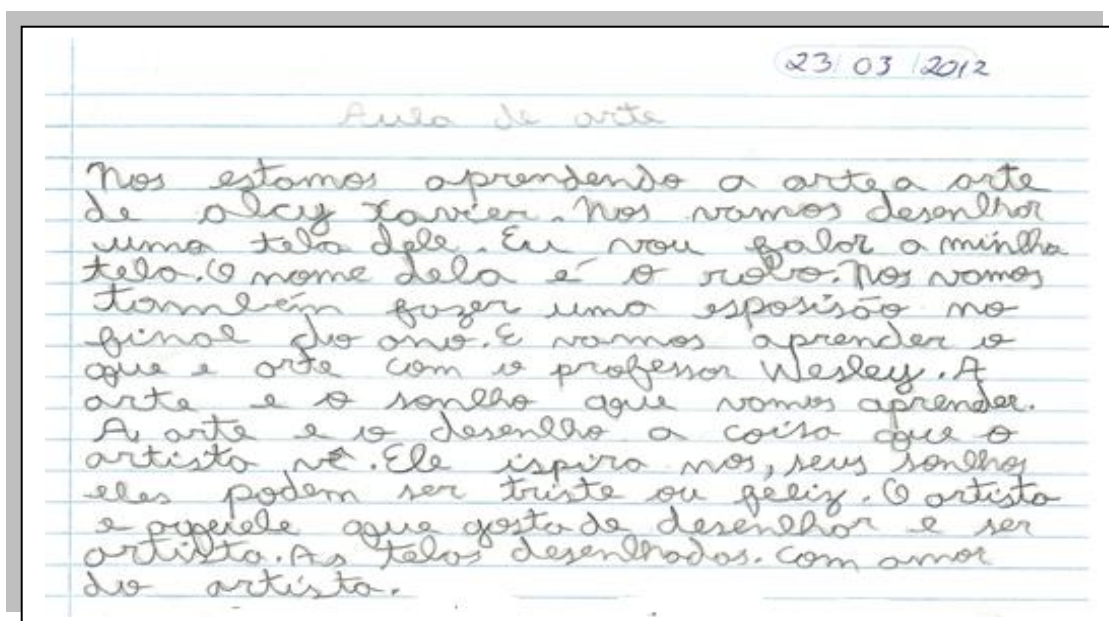 23/03/2012
Aula de arte
Nos estamos aprendendo a arte a arte
de alcy xavier. Nos vamos desenhar
uma tela dele. Eu vou falar a minha
tela. O nome dela é o robo. Nos vamos
também fazer uma esposisão no
final do ano. E vamos aprender o
que e arte com o professor Wesley. A
arte e o sonho que vamos aprender.
A arte e o desenho a coisa que o
artista vê. Ele ispira nos, seus sonhos
eles podem ser triste ou feliz. O artista
e aquele que gosta de desenhar e ser
artista. As telas desenhadas. com amor
do artista.